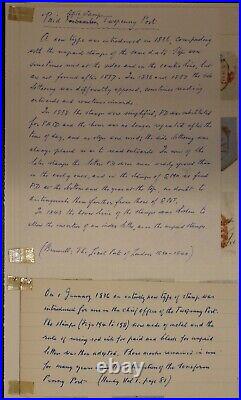 Type Stamps
Paid Twopenny Post
A new type was introduced in 1836, corresponding
with the unpaid stamps of the same date. Type was
sometimes used at the sides and in the centre line, but
are not found after 1837. In 1836 and 1837 the side
lettering was differently applied, sometimes reading
outwards and sometimes inwards.
In 1838 the stamps were simplified, PD was substituted
for PAID and the hour was no longer repeated after the
time of day, and as type was used, the side lettering was
always placed so as to read outwards. In some of the
later stamps the letters PD were more widely spaced than
in the early ones, and in the stamps of GPO is found
PD at the bottom and the year at the top, no doubt to
distinguish them further from those of GPO.
In 1843 the lower line of the stamps was broken to
allow the insertion of an index letter as in the unpaid stamps
(Brumell, The Local Post of London 1680-1840)
On 1 January 1836 an entirely new type of stamp was
introduced for use in the Chief Office of the Twopenny Post.
The stamps (Figs 190 to 195) were made of metal and the
rule of using red ink for paid and black for unpaid
letters was then adopted. These marks remained in use
for many years after the abolition of the Twopenny
Penny Post - (Hendy Vol 1. page 81)